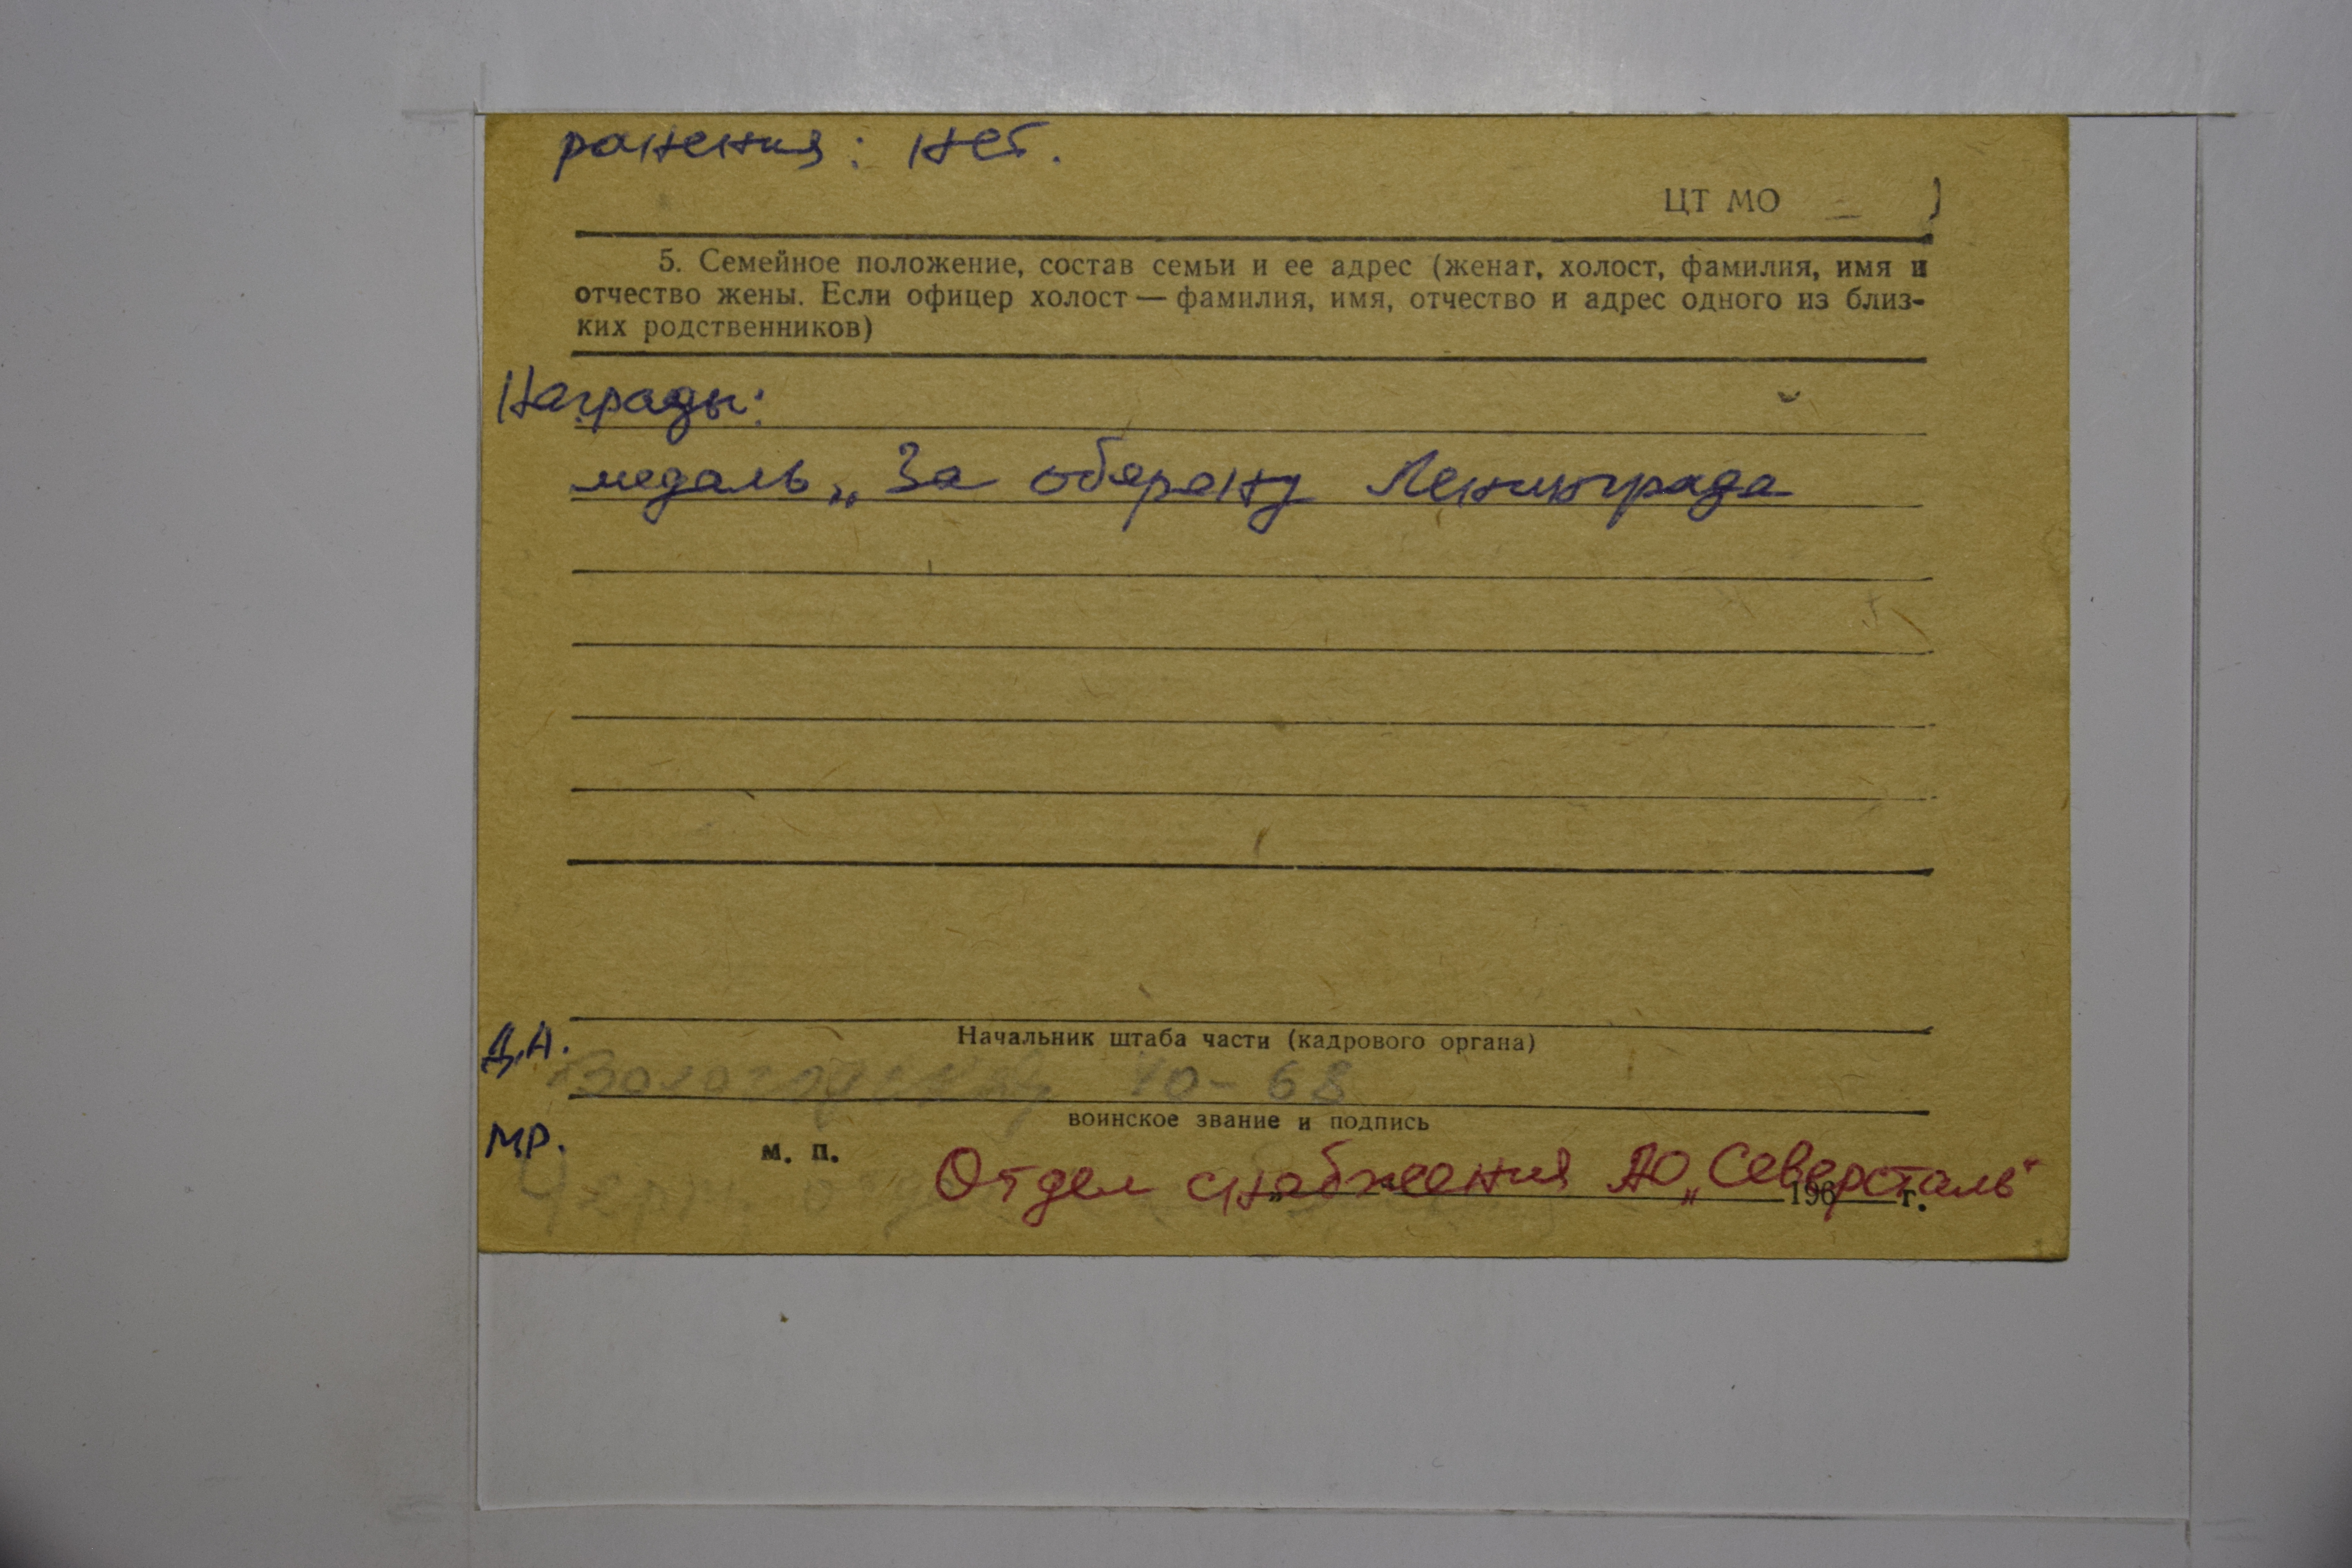 ранения: нет.
ЦТ МО
5. Семейное положение, состав семьи и ее адрес (женат, холост, фамилия, имя и
отчество жены. Если офицер холост — фамилия, имя, отчество и адрес одного из близ-
ких родственников)
Награды:
медаль „За оборону Ленинграда
Начальник штаба части (кадрового органа)
Д.А. 10-68
воинское звание и подпись
М.Р.
м. п.
Отдел снабжения АО „Северсталь"
196 г.